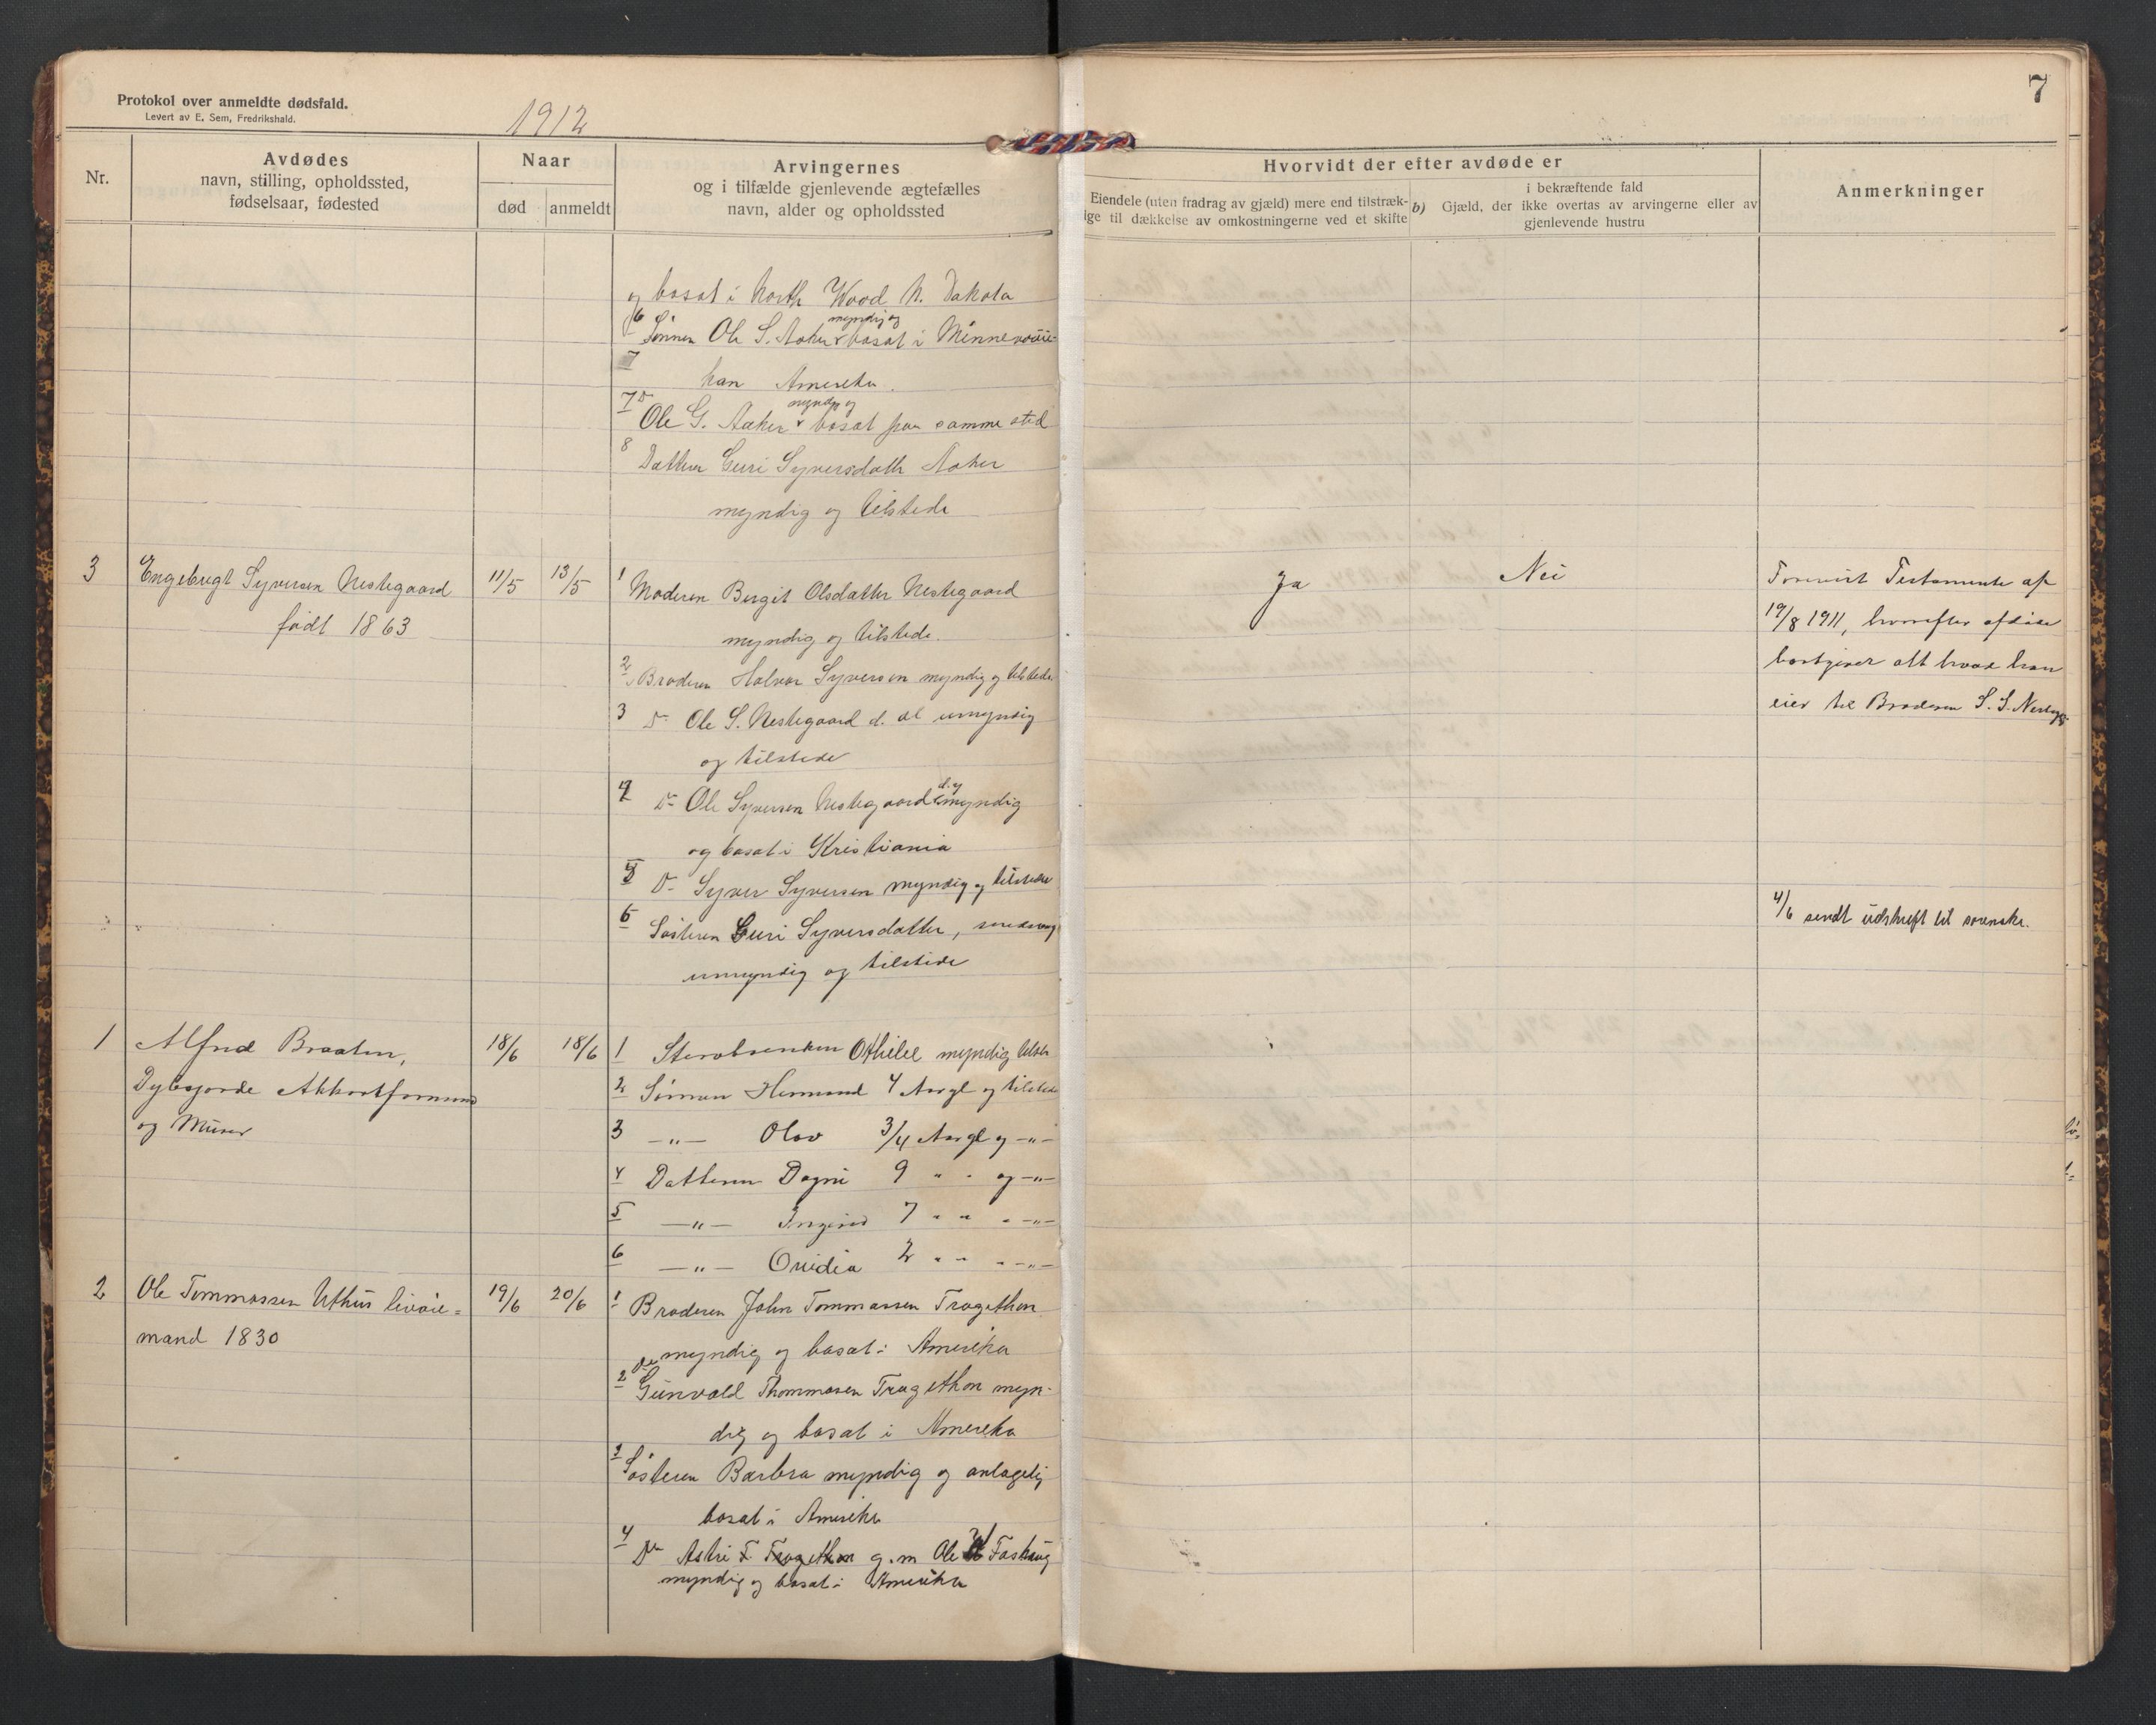 Protokol over anmeldte dødsfald.
Levert av E. Sem, Fredrikshald.
1912
7
Nr.
Avdødes
navn, stilling, opholdssted,
fødselsaar, fødested
Naar
død
anmeldt
Arvingernes
og i tilfælde gjenlevende ægtefælles
navn, alder og opholdssted
Hvorvidt der efter avdøde er
Eiendele (uten fradrag av gjæld) mere end tilstræk-
ige til dækkelse av omkostningerne ved et skifte
b)
i bekræftende fald
Gjæld, der ikke overtas av arvingerne eller av
gjenlevende hustru
Anmerkninger
og bosat i North Wood N. Dakota
6 Sønnen Ole S. Aaker myndig og bosat i
Amerika.
7 Do Ole G. Aaker myndig og bosat paa samme sted
8 Datter Guri Syversdatter Aaker
myndig og tilstede
3 Engebregt Syversen Nestegaard 11/5 13/5
født 1863
1 Moderen Bergit Olsdatter Nestegaard
myndig og tilstede.
2 Broderen Halvor Syversen myndig og tilstede
3 Do Ole S. Nestegaard d. æl umyndig
og tilstede
4 Do Ole Syversen Nestegaard d.y myndig
og bosat i Kristiania
5 Do Syver Syversen myndig og tilstede
6 Søsteren Guri Syversdatter,
umyndig og tilstede
Ja
Nei
Forevist Testamente af
19/8 1911, hvorefter afdøde
bortgiver alt hvad han
eier til Broderen S. S. Nestegd
4/6 sendt udskrift til sorenskr.
1 Alfred Braaten, 18/6 18/6
Akkortformand
og Murer
1 Othilie myndig tilste
2 Sønnen Hermund 4 Aargl og tilstede
3 -"- Olav 3/4 Aargl og -"-
4 Datteren Dagni 9 " " og -"-
5 -"- Ingrid 7 " " " -"-
6 -"- Ovidia 2 " " " -"-
2 Ole Tommassen Uthus livøie= 19/6 20/6
mand 1830
1 Broderen John Tommassen Tragethon
myndig og bosat i Amerika
2 Do Gunvald Thommasen Tragethon myn-
dig og bosat i Amerika
3 Søsteren Barbra myndig og antagelig
bosat i Amerika
4 Do Astri T. Tragethon g. m Ole
myndig og bosat i Amerika